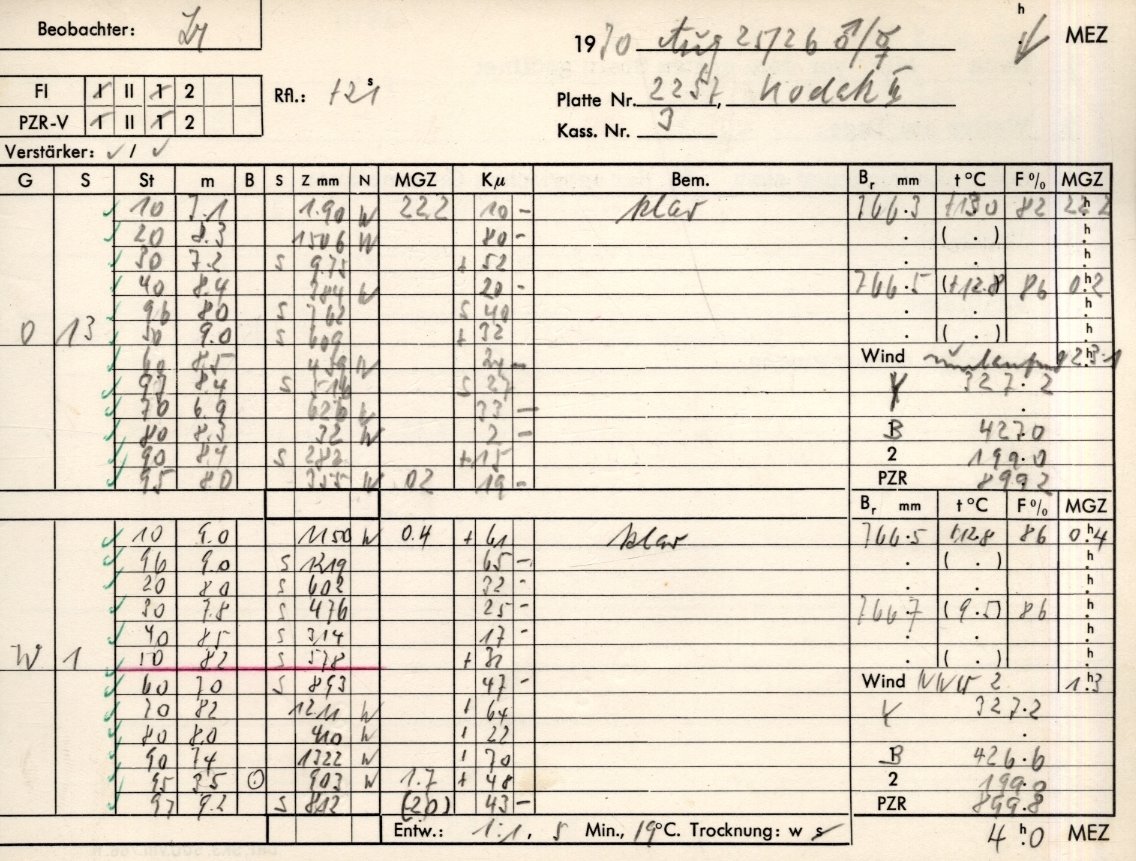 h
Beobachter:
19 70 Aug 25/26 ♂/☿ MEZ
FI I II I 2
Rfl.: +21 s
Platte Nr. 2257, Kodak
PZR-V I II I 2
Kass. Nr. 3
Verstärker: ✓ / ✓
G S St m B S Z mm N MGZ Kμ Bem. Br mm t °C F % MGZ
10 7.1 1.90 W 22.2 10 – klar 766.3 +13.0 82 22.2 h
20 8.3 1506 W 80 – . ( . ) h
30 7.2 S 975 + 52 . h
40 8.4 384 W 20 – 766.5 (+12.8) 86 0.2 h
96 8.0 S 762 S 40 . . h
O 13 50 9.0 S 609 + 32 . ( . ) h
60 8.5 459 W 24 – Wind 23.1 h
97 8.4 S 514 S 27 327.2
70 6.9 626 W 33 – .
80 8.3 32 W 2 – B 427.0
90 8.4 S 282 + 15 2 199.0
95 8.0 355 W 02 19 – PZR 899.2
Br mm t °C F % MGZ
10 9.0 1150 W 0.4 + 61 klar 766.5 +12.8 86 0.4 h
96 9.0 S 1219 65 – . ( . ) h
20 8.0 S 602 32 – . . h
30 7.8 S 476 25 – 766.7 (9.5) 86 h
40 8.5 S 314 17 – . . h
W 1 50 8.2 S 578 + 31 . ( . ) h
60 7.0 S 893 47 – Wind NNW 2 1.3 h
70 82 1211 W ' 64 327.2
80 8.0 410 W ' 22 .
90 7.4 1322 W ' 70 B 426.6
95 3.5 ⊙ 903 W 1.7 + 48 2 199.0
97 9.2 S 812 (2.0) 43 – PZR 899.8
Entw.: 1:1, 5 Min., 19 °C. Trocknung: w s 4 h .0 MEZ